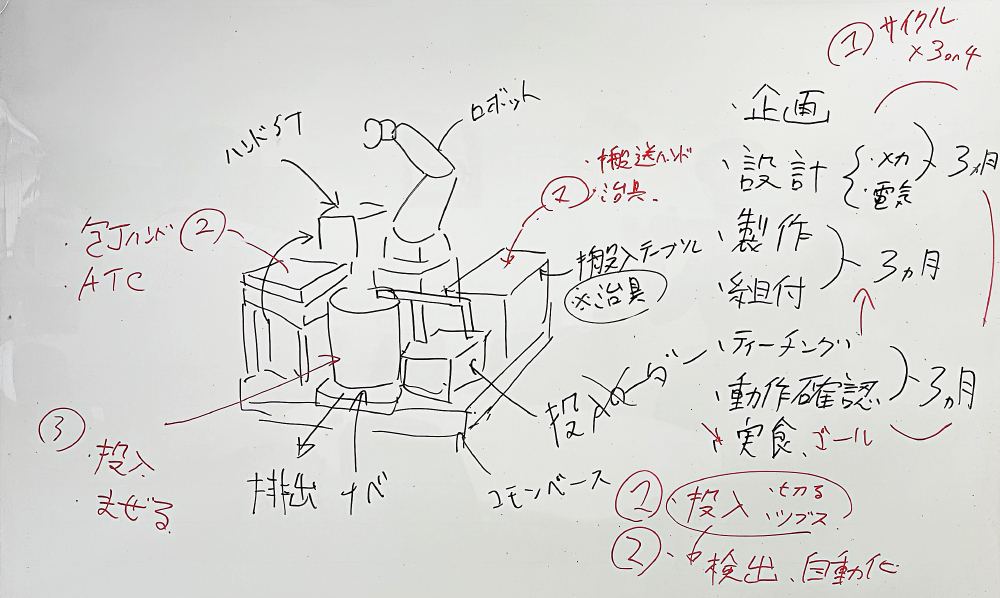 ① サイクル
×3 or 4
・企画
・設計 { ・メカ
・電気
3ヵ月
・製作
・組付
3ヵ月
・ティーチング
・動作確認
3ヵ月
実食、ゴール
① ・投入 ・切る
・ツブス
② ・検出、自動化
ハンドST
ロボット
・搬送ハンド
① ・治具
・包丁ハンド ②
ATC
搬入テーブル
※治具
③ 投入
まぜる
排出
ナベ
コモンベース